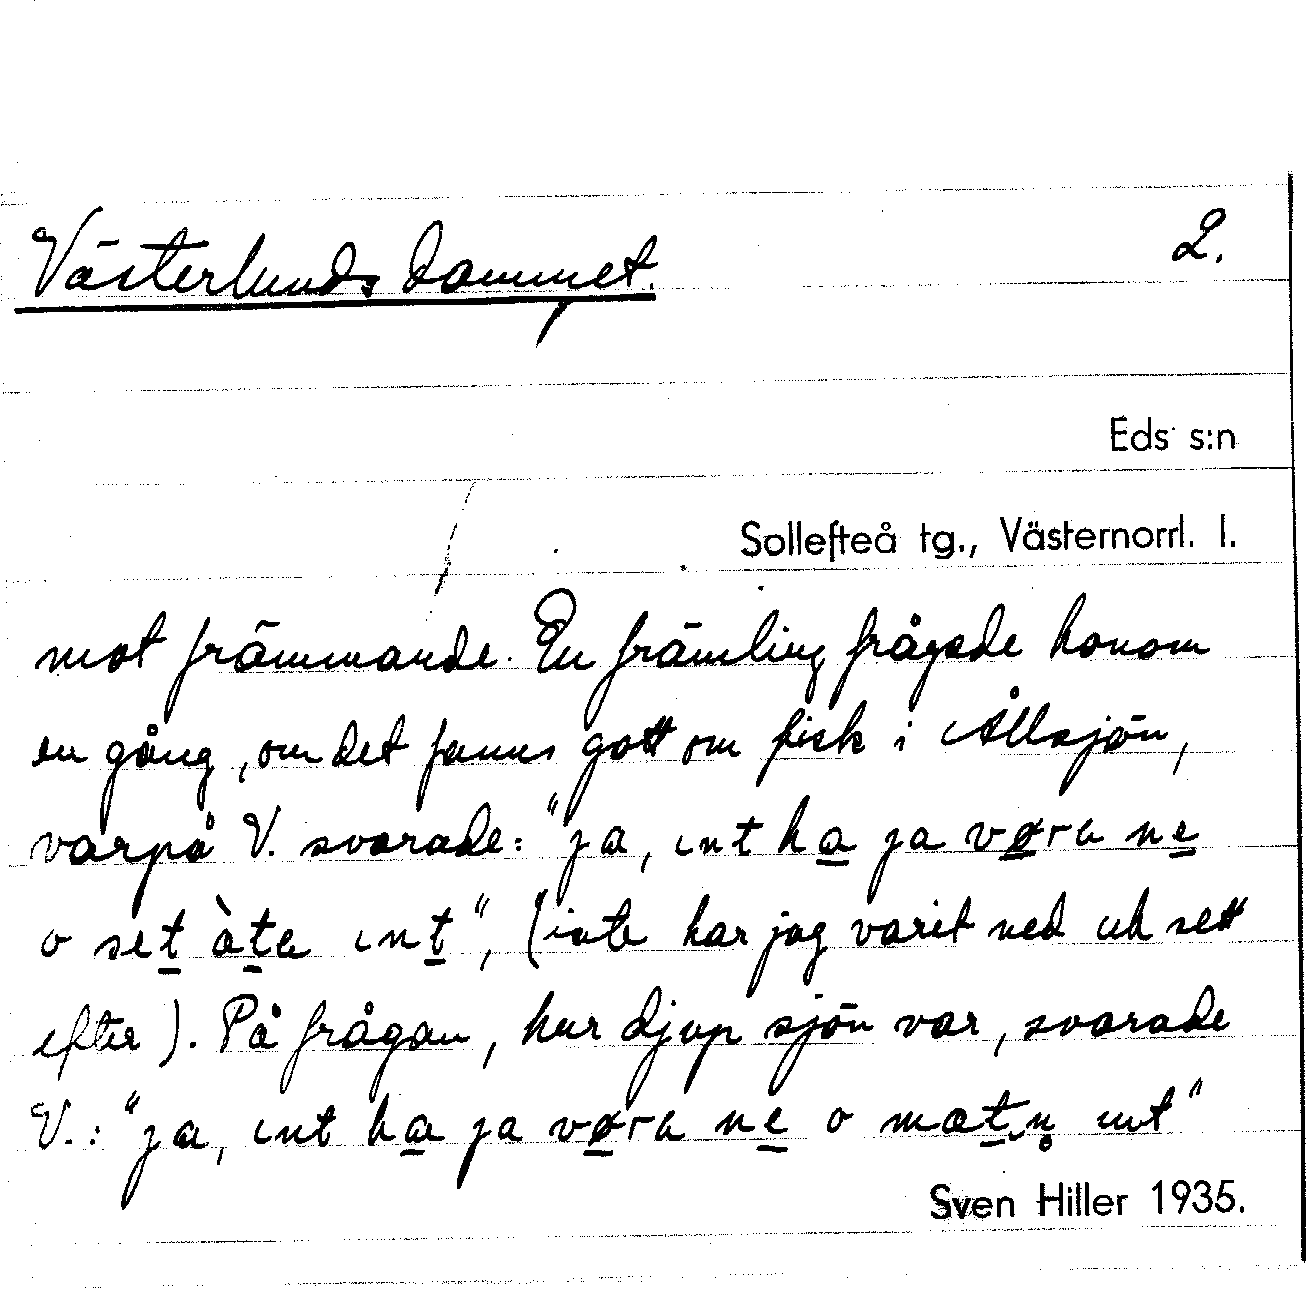 Västerlundsdammet. 2.
Eds s:n
Sollefteå tg., Västernorrl. l.
mot främmande. En främling frågade honom
en gång, om det fanns gott om fisk i Ållsjön,
varpå V. svarade: "ja, ınt ha ja vøra ne
o set àte ınt", (inte har jag varit ned och sett
efter). På frågan, hur djup sjön var, svarade
V.: "ja, ınt ha ja vøra ne o mætn̥ ınt"
Sven Hiller 1935.